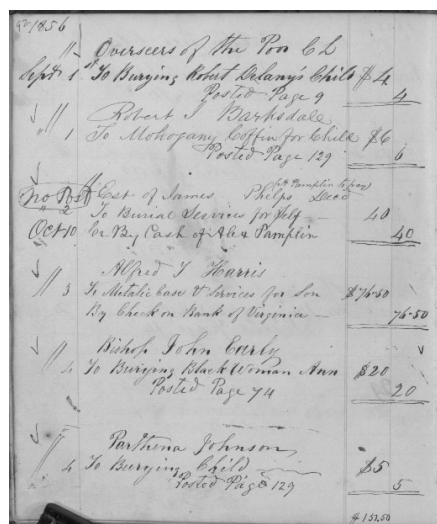 1856
" Overseers of the Poor C L
Sept 1st To Burying Robert Delany's Child $4
Posted Page 9 4
" Robert S Barksdale
" 1 To Mohogany Coffin for Child $6
Posted Page 129 6
(A Pamplin to pay)
No Post Est of James Phelps Decd
" 2 To Burial Services for Self — 40
Oct 10 Cr By Cash of Alex Pamplin 40
Alfred T Harris
" 3 To Metalic Case & Services for Son $76-50
By Check on Bank of Virginia — 76-50
Bishop John Early
" 4 To Burying Black Woman Ann $20
Posted Page 74 20
Parthena Johnson
" 4 To Burying Child $5
Posted Page 129 5
$151.50